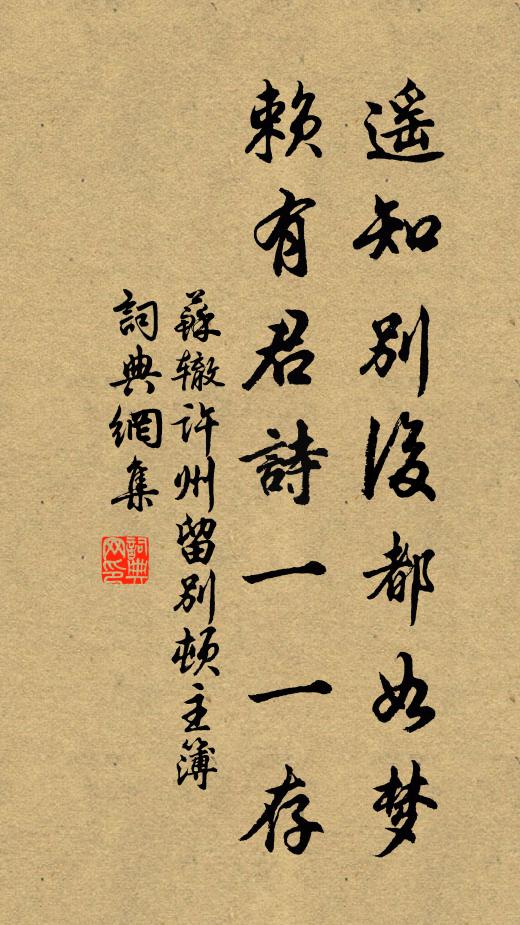 遥知別後都如梦
赖有君詩一一存
蘇辙许州留别顿主簿
詞典網集
詞典
网印